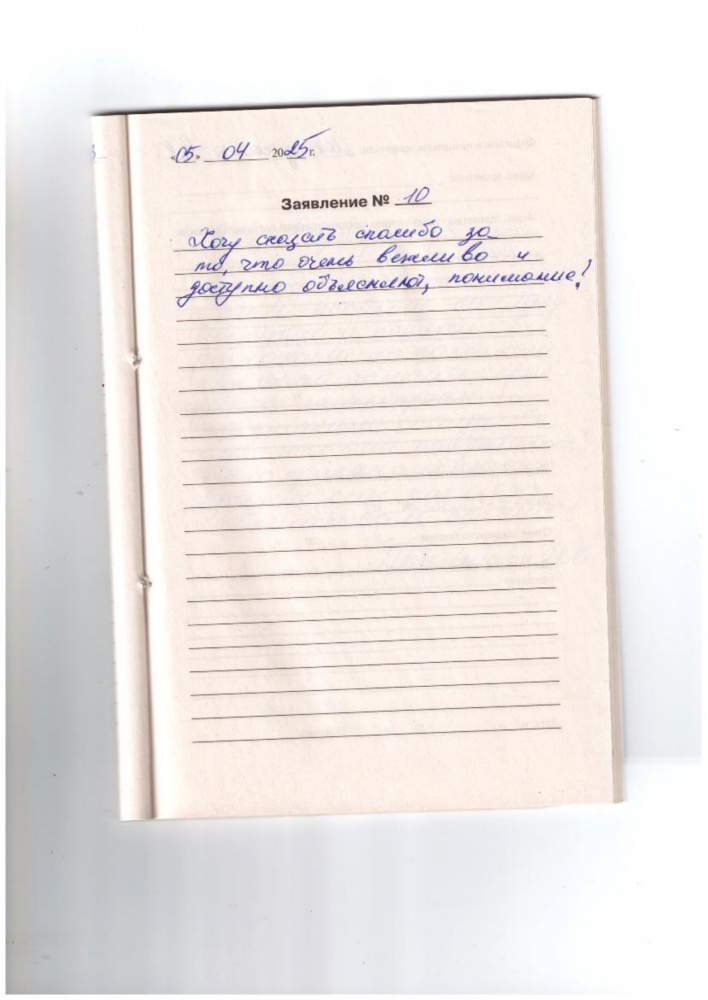 «05» 04 2025 г.
Заявление № 10
Хочу сказать спасибо за
то, что очень вежливо и
доступно объясняют, понимание!